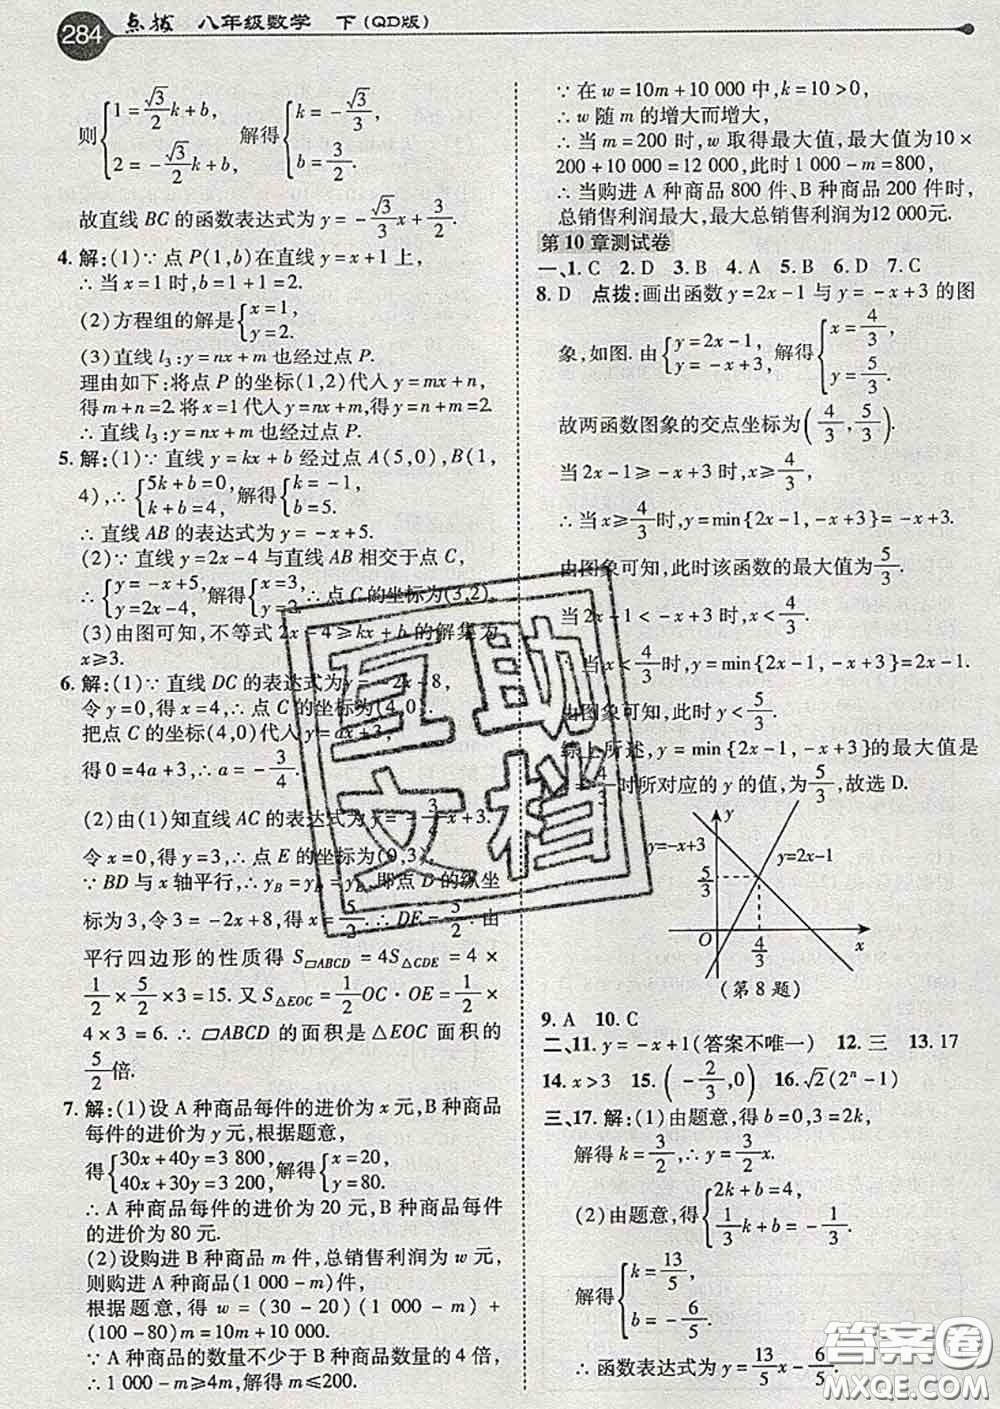 284 点拨 八年级数学 下(QD版)
则{1=√3/2k+b, 2=-√3/2k+b, 解得{k=-√3/3, b=3/2.
故直线 BC 的函数表达式为 y=-√3/3x+3/2.
4. 解:(1)∵点 P(1,b)在直线 y=x+1 上,
∴当 x=1 时,b=1+1=2.
(2)方程组的解是{x=1, y=2.
(3)直线 l₃:y=nx+m 也经过点 P.
理由如下:将点 P 的坐标(1,2)代入 y=mx+n,
得 m+n=2.将 x=1 代入 y=nx+m,得 y=n+m=2.
∴直线 l₃:y=nx+m 也经过点 P.
5. 解:(1)∵直线 y=kx+b 经过点 A(5,0),B(1,
4),∴{5k+b=0, k+b=4, 解得{k=-1, b=5.
∴直线 AB 的表达式为 y=-x+5.
(2)∵直线 y=2x-4 与直线 AB 相交于点 C,
∴{y=-x+5, y=2x-4, 解得{x=3, y=2. ∴点 C 的坐标为(3,2).
(3)由图可知,不等式 2x-4≥kx+b 的解集为
x≥3.
6. 解:(1)∵直线 DC 的表达式为 y=-2x+8,
令 y=0,得 x=4,∴点 C 的坐标为(4,0).
把点 C 的坐标(4,0)代入 y=ax+3,
得 0=4a+3,∴a=-3/4.
(2)由(1)知直线 AC 的表达式为 y=-3/4x+3.
令 x=0,得 y=3,∴点 E 的坐标为(0,3).
∵BD 与 x 轴平行,∴y_B=y_D=y_E.即点 D 的纵坐
标为3,令 3=-2x+8,得 x=5/2.∴DE=5/2.由
平行四边形的性质得 S▱ABCD=4S△CDE=4×
1/2×5/2×3=15.又 S△EOC=1/2OC·OE=1/2×
4×3=6.∴▱ABCD 的面积是△EOC 面积的
5/2倍.
7. 解:(1)设 A 种商品每件的进价为 x 元,B 种商品
每件的进价为 y 元,根据题意,
得{30x+40y=3 800, 40x+30y=3 200, 解得{x=20, y=80.
∴A 种商品每件的进价为 20 元,B 种商品每件
的进价为 80 元.
(2)设购进 B 种商品 m 件,总销售利润为 w 元,
则购进 A 种商品(1 000-m)件,
根据题意,得 w=(30-20)(1 000-m)+
(100-80)m=10m+10 000.
∵A 种商品的数量不少于 B 种商品数量的 4 倍,
∴1 000-m≥4m,解得 m≤200.
∵在 w=10m+10 000 中,k=10>0,
∴w 随 m 的增大而增大,
∴当 m=200 时,w 取得最大值,最大值为10×
200+10 000=12 000,此时 1 000-m=800,
∴当购进 A 种商品 800 件、B 种商品 200 件时,
总销售利润最大,最大总销售利润为12 000元.
第 10 章测试卷
一、1. C 2. D 3. B 4. A 5. B 6. D 7. C
8. D 点拨:画出函数 y=2x-1 与 y=-x+3 的图
象,如图.由{y=2x-1, y=-x+3, 解得{x=4/3, y=5/3.
故两函数图象的交点坐标为(4/3,5/3).
当 2x-1≥-x+3 时,x≥4/3,
∴当 x≥4/3时,y=min{2x-1,-x+3}=-x+3.
由图象可知,此时该函数的最大值为5/3.
当 2x-1<-x+3 时,x<4/3,
∴当 x<4/3时,y=min{2x-1,-x+3}=2x-1.
由图象可知,此时 y<5/3.
综上所述,y=min{2x-1,-x+3}的最大值是
x=4/3时所对应的 y 的值,为5/3,故选 D.
y
y=-x+3 y=2x-1
5/3
O 4/3 x
(第 8 题)
9. A 10. C
二、11. y=-x+1(答案不唯一) 12. 三 13. 17
14. x>3 15. (-2/3,0) 16. √2(2ⁿ-1)
三、17. 解:(1)由题意,得 b=0,3=2k,
解得 k=3/2,∴y=3/2x.
(2)由题意,得{2k+b=4, 1/3k+b=-1/3.
解得{k=13/5, b=-6/5.
∴函数表达式为 y=13/5x-6/5.
互助
文档
答案圈
MXQE.COM